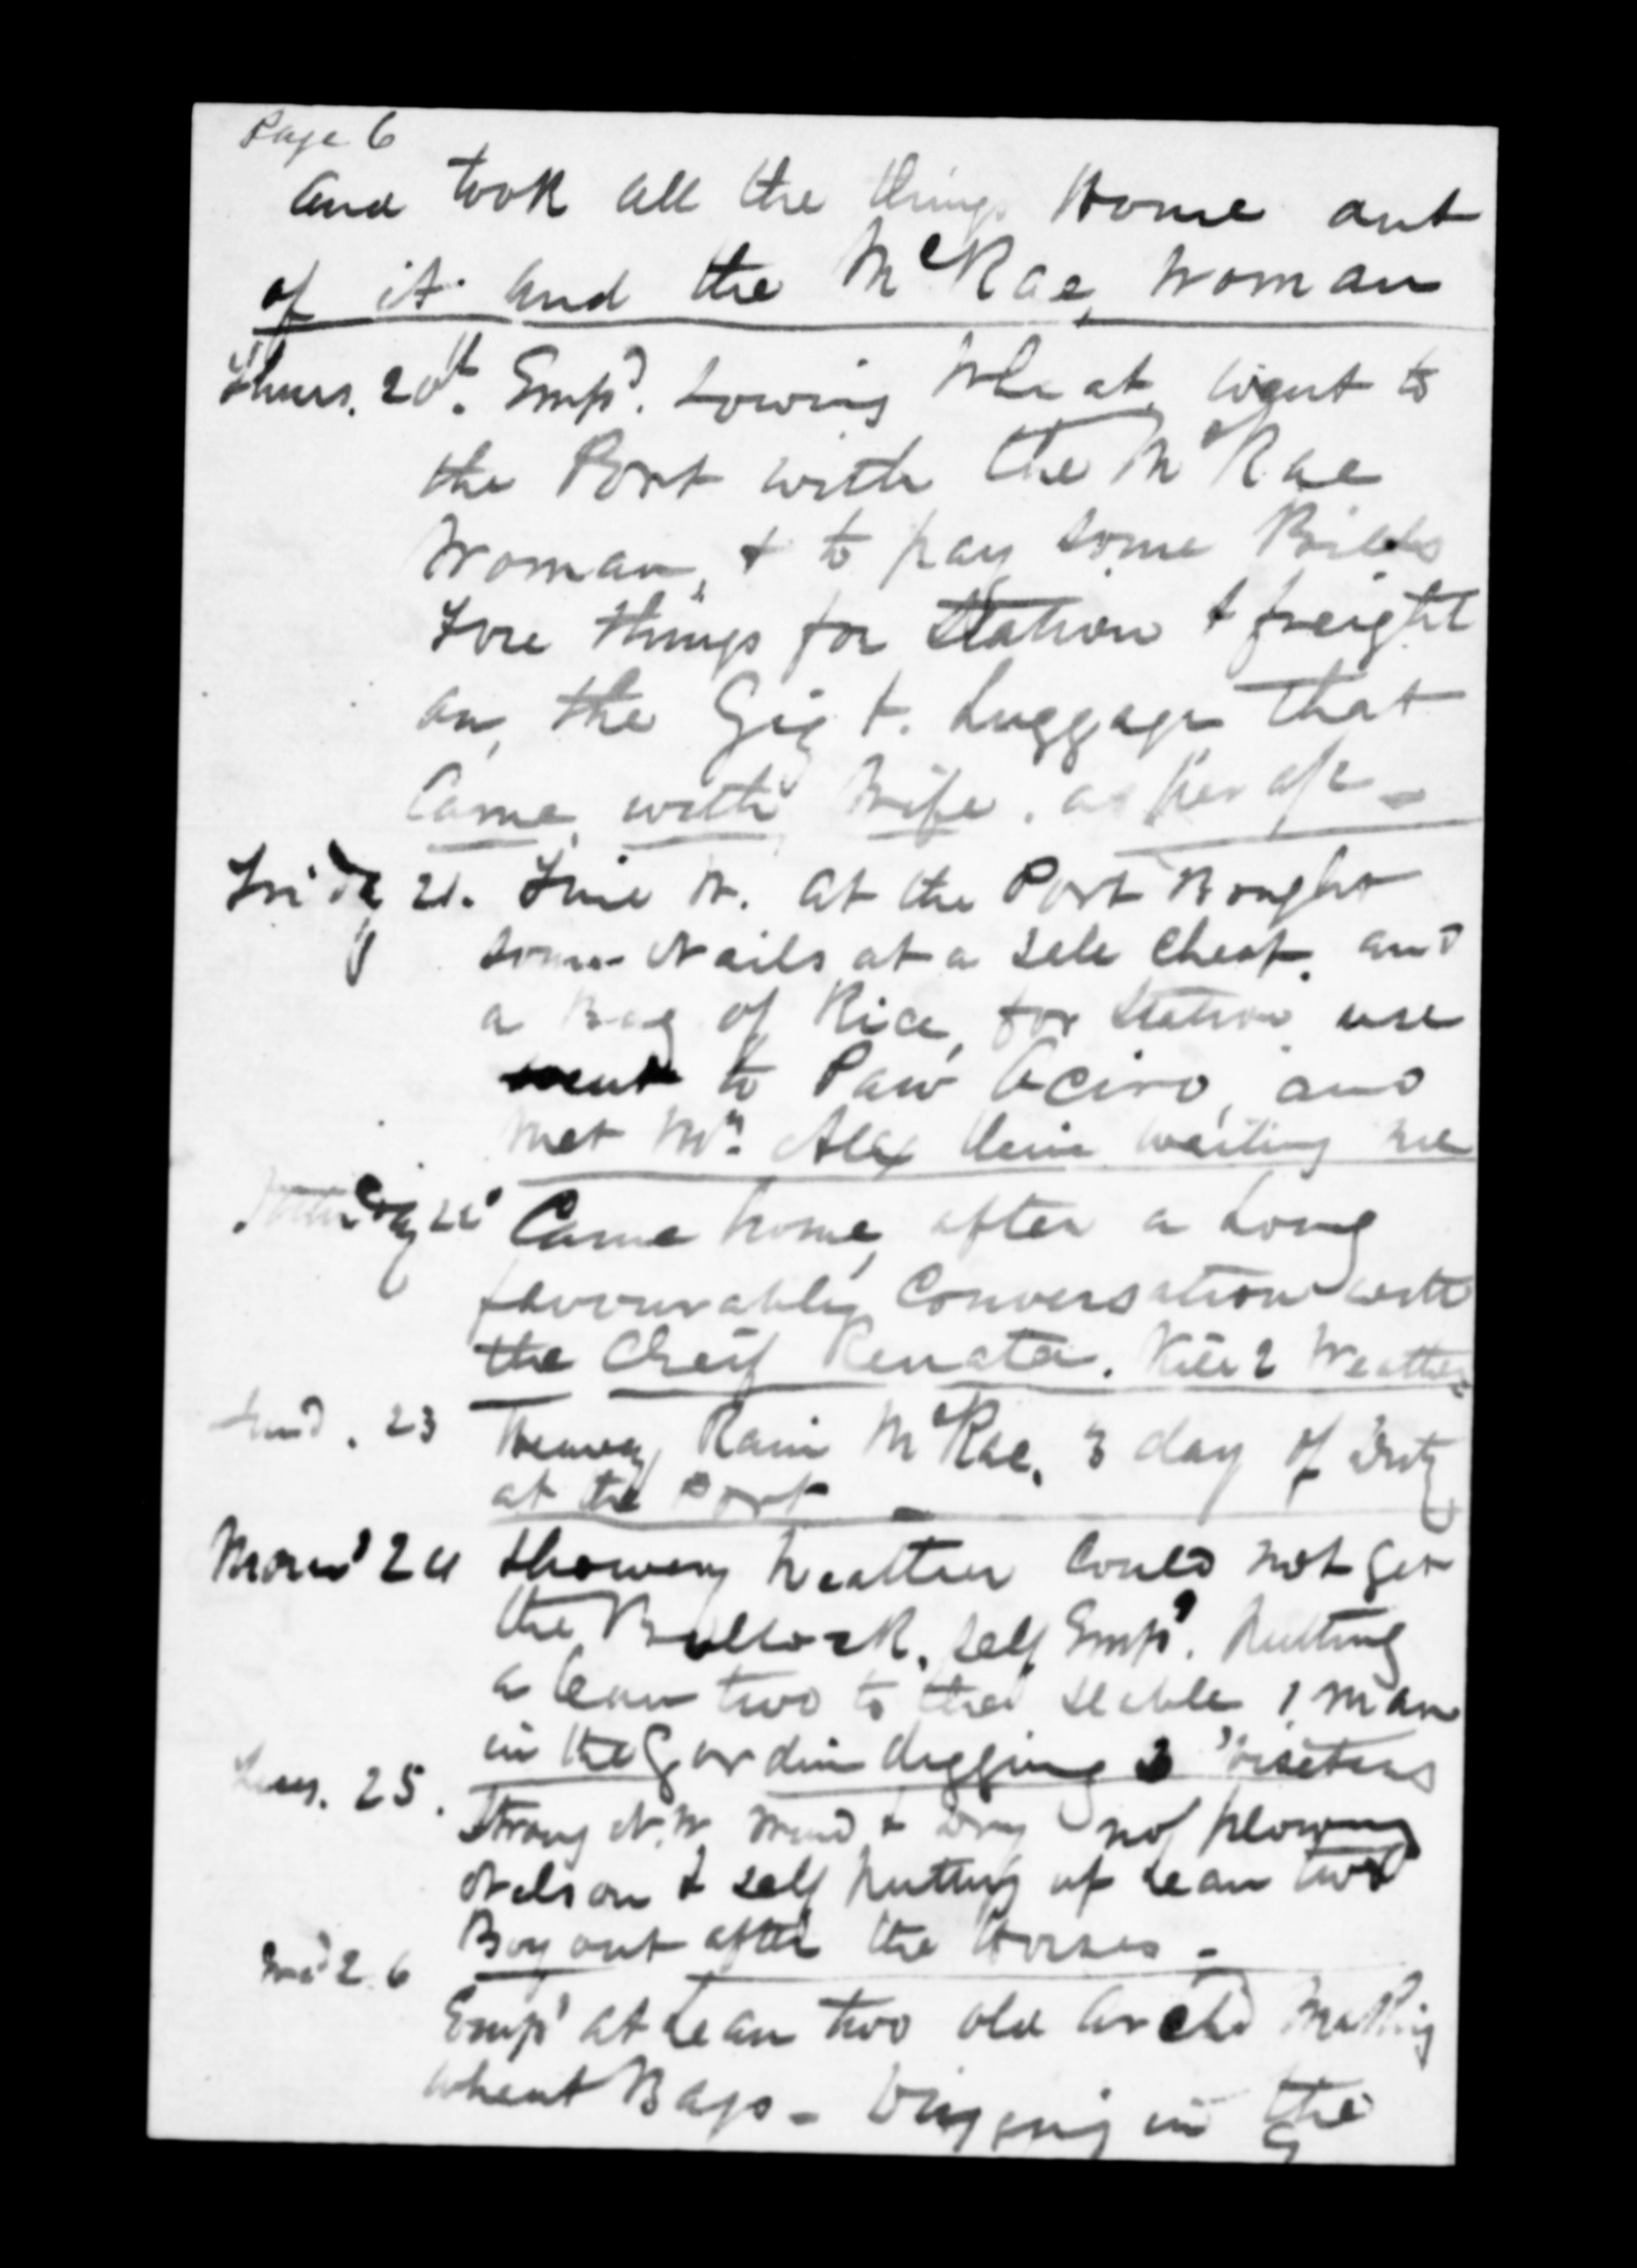 Page 6
and took all the things Home out
of it and the McRae, Woman
Thurs. 20th. Emp'd. Sowing Wheat, went to
the Port with the McRae
Woman, & to pay some Bills
for things for Station & freight
on, the Gig &. Luggage that
Came, with Wife. as per a/c
Friday 21. Fine W. at the Port Bought
some Nails at a Sale Cheap. and
a Bag of Rice, for Station use
went to Paw and
met Mr. Alex waiting me
22 Came home, after a Long
favourably Conversation with
the Cheif Renata. 2 Weather
Sund. 23 Heavy Rain McRae. 3 day of Duty
at the Port
Mond 24 Showery Weather Could not get
the Bullock. self Emp'd. Putting
a lean two to the stable 1 man
in the Gardin digging 3 Viseters
Tues. 25. Strong N.W. Wind & Dry no plowing
Nelson & self Putting up Lean two
Boy out after the Horses.
Wed 26 Emp'd at Lean two old Making
wheat Bags - Digging in the
G